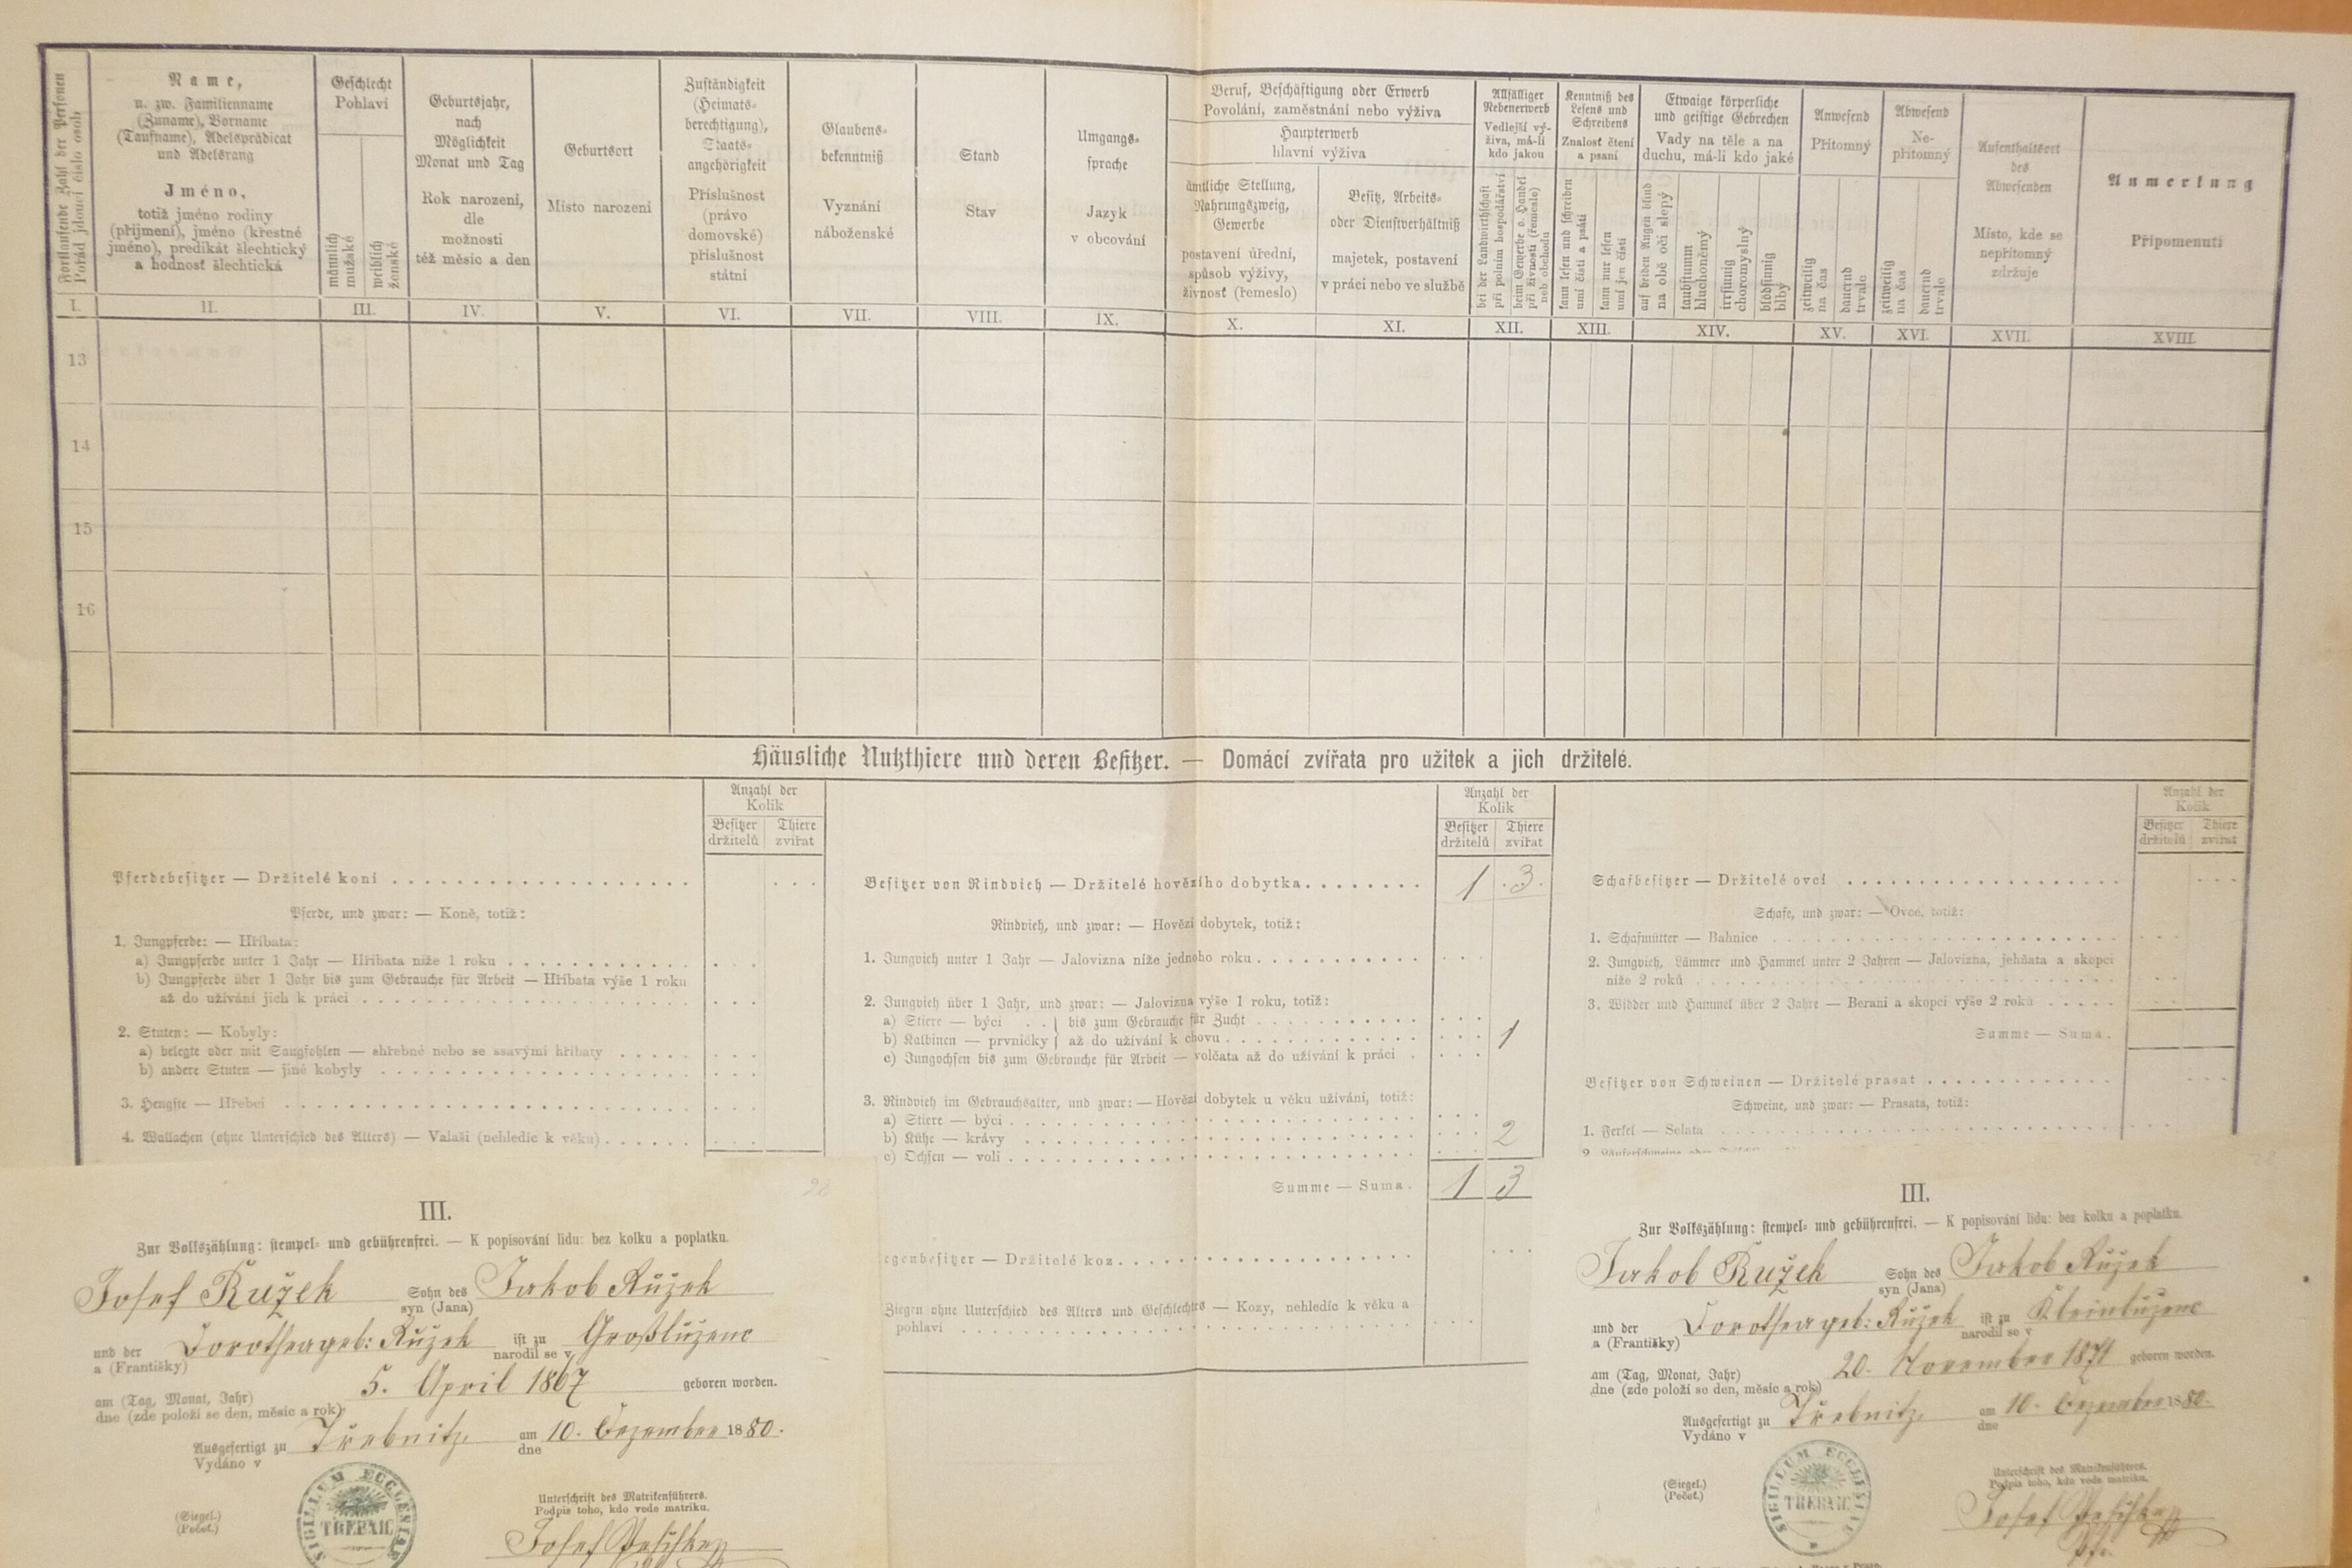 Fortlaufende Zahl der Personen
Pořád jdoucí číslo osob
Name,
u. zw. Familienname
(Zuname), Vorname
(Taufname), Adelsprädicat
und Adelsrang
Jméno,
totiž jméno rodiny
(příjmení), jméno (křestné
jméno), predikát šlechtický
a hodnosť šlechtická
Geschlecht
Pohlaví
männlich
mužské
weiblich
ženské
Geburtsjahr,
nach
Möglichkeit
Monat und Tag
Rok narození,
dle
možnosti
též měsíc a den
Geburtsort
Místo narození
Zuständigkeit
(Heimats-
berechtigung),
Staats-
angehörigkeit
Příslušnost
(právo
domovské)
příslušnost
státní
Glaubens-
bekenntniß
Vyznání
náboženské
Stand
Stav
Umgangs-
sprache
Jazyk
v obcování
Beruf, Beschäftigung oder Erwerb
Povolání, zaměstnání nebo výživa
Haupterwerb
hlavní výživa
ämtliche Stellung,
Nahrungszweig,
Gewerbe
postavení úřední,
spůsob výživy,
živnosť (řemeslo)
Besitz, Arbeits-
oder Dienstverhältniß
majetek, postavení
v práci nebo ve službě
Allfälliger
Nebenerwerb
Vedlejší vý-
živa, má-li
kdo jakou
bei der Landwirthschaft
při polním hospodářství
beim Gewerbe o. Handel
při živnosti (řemesle)
neb obchodu
Kenntniß des
Lesens und
Schreibens
Znalosť čtení
a psaní
kann lesen und schreiben
umí čísti a psáti
kann nur lesen
umí jen čísti
Etwaige körperliche
und geistige Gebrechen
Vady na těle a na
duchu, má-li kdo jaké
auf beiden Augen blind
na obě oči slepý
taubstumm
hluchoněmý
irrsinnig
choromyslný
blödsinnig
blbý
Anwesend
Přítomný
zeitweilig
na čas
dauernd
trvale
Abwesend
Ne-
přítomný
zeitweilig
na čas
dauernd
trvale
Aufenthaltsort
des
Abwesenden
Místo, kde se
nepřítomný
zdržuje
Anmerkung
Připomenutí
I. II. III. IV. V. VI. VII. VIII. IX. X. XI. XII. XIII. XIV. XV. XVI. XVII. XVIII.
13
14
15
16
Häusliche Nutzthiere und deren Besitzer. — Domácí zvířata pro užitek a jich držitelé.
Anzahl der
Kolik
Besitzer Thiere
držitelů zvířat
Pferdebesitzer — Držitelé koní
Pferde, und zwar: — Koně, totiž:
1. Jungpferde: — Hříbata:
a) Jungpferde unter 1 Jahr — Hříbata níže 1 roku
b) Jungpferde über 1 Jahr bis zum Gebrauche für Arbeit — Hříbata výše 1 roku
až do užívání jich k práci
2. Stuten: — Kobyly:
a) belegte oder mit Saugfohlen — shřebné nebo se ssavými hříbaty
b) andere Stuten — jiné kobyly
3. Hengste — Hřebci
4. Wallachen (ohne Unterschied des Alters) — Valaši (nehledíc k věku)
Anzahl der
Kolik
Besitzer Thiere
držitelů zvířat
Besitzer von Rindvieh — Držitelé hovězího dobytka 1 3
Rindvieh, und zwar: — Hovězí dobytek, totiž:
1. Jungvieh unter 1 Jahr — Jalovizna níže jednoho roku
2. Jungvieh über 1 Jahr, und zwar: — Jalovizna výše 1 roku, totiž:
a) Stiere — býci } bis zum Gebrauche für Zucht
b) Kalbinen — prvničky } až do užívání k chovu 1
c) Jungochsen bis zum Gebrauche für Arbeit — volčata až do užívání k práci
3. Rindvieh im Gebrauchsalter, und zwar: — Hovězí dobytek u věku užívání, totiž:
a) Stiere — býci
b) Kühe — krávy 2
c) Ochsen — voli
Summe — Suma. 1 3
egenbesitzer — Držitelé koz
Ziegen ohne Unterschied des Alters und Geschlechtes — Kozy, nehledíc k věku a
pohlaví
Anzahl der
Kolik
Besitzer Thiere
držitelů zvířat
Schafbesitzer — Držitelé ovcí
Schafe, und zwar: — Ovce, totiž:
1. Schafmütter — Bahnice
2. Jungvieh, Lämmer und Hammel unter 2 Jahren — Jalovizna, jehňata a skopci
níže 2 roků
3. Widder und Hammel über 2 Jahre — Berani a skopci výše 2 roků
Summe — Suma.
Besitzer von Schweinen — Držitelé prasat
Schweine, und zwar: — Prasata, totiž:
1. Ferkel — Selata
28
III.
Zur Volkszählung: stempel- und gebührenfrei. — K popisování lidu: bez kolku a poplatku.
JosefRužek Sohn des Jakob Růžek
syn (Jana)
und der Dorothea geb: Růžek ist zu Großlůženc
a (Františky) narodil se v
am (Tag, Monat, Jahr) 5. April 1867 geboren worden.
dne (zde položí se den, měsíc a rok)
Ausgefertigt zu Třebnitz am 10. Dezember 1880.
Vydáno v dne
(Siegel.)
(Pečeť.)
SIGILLUM ECCLESIAE
Unterschrift des Matrikenführers.
Podpis toho, kdo vede matriku.
Josef
28
III.
Zur Volkszählung: stempel- und gebührenfrei. — K popisování lidu: bez kolku a poplatku.
JakobRužek Sohn des Jakob Růžek
syn (Jana)
und der Dorothea geb: Růžek ist zu Kleinlůženc
a (Františky) narodil se v
am (Tag, Monat, Jahr) 20. November 1871 geboren worden.
dne (zde položí se den, měsíc a rok)
Ausgefertigt zu Třebnitz am 10. Dezember 1880.
Vydáno v dne
(Siegel.)
(Pečeť.)
SIGILLUM ECCLESIAE
Unterschrift des Matrikenführers.
Podpis toho, kdo vede matriku.
Josef